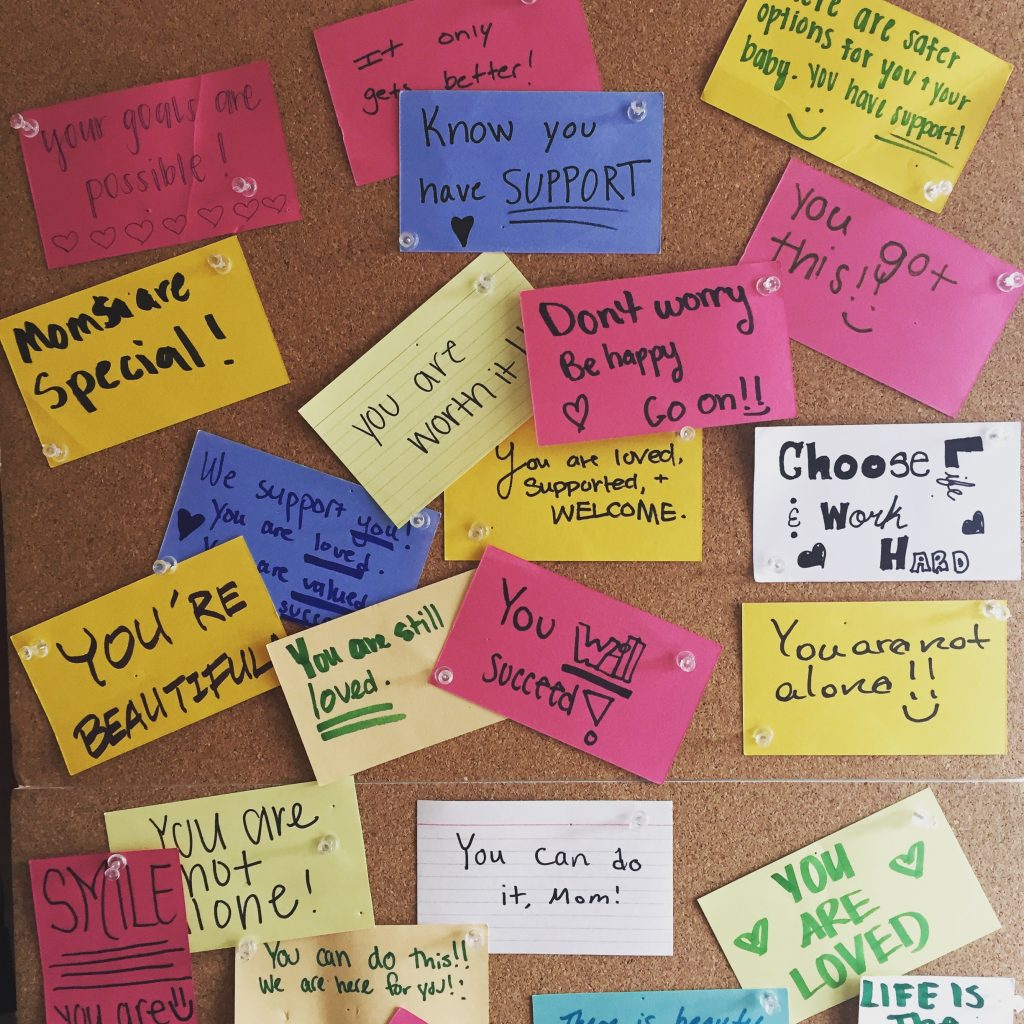 It only
gets better!
are safer
options for you & your
baby. You have
support!
your goals are
possible!
Know you
have SUPPORT
You got
this!!
Moms are
Special!
you are
worth it!
Don't worry
Be happy
Go on!!
We support you!
You are loved.
are valued
You are loved,
Supported, +
WELCOME.
Choose Life
& Work
HARD
YOU'RE
BEAUTIFUL
You are still
loved.
You will
succeed!
You are not
alone!!
You are
not
alone!
You can do
it, Mom!
YOU
ARE
LOVED
SMILE
you are
You can do this!!
We are here for you!
There is beauty
LIFE IS
The